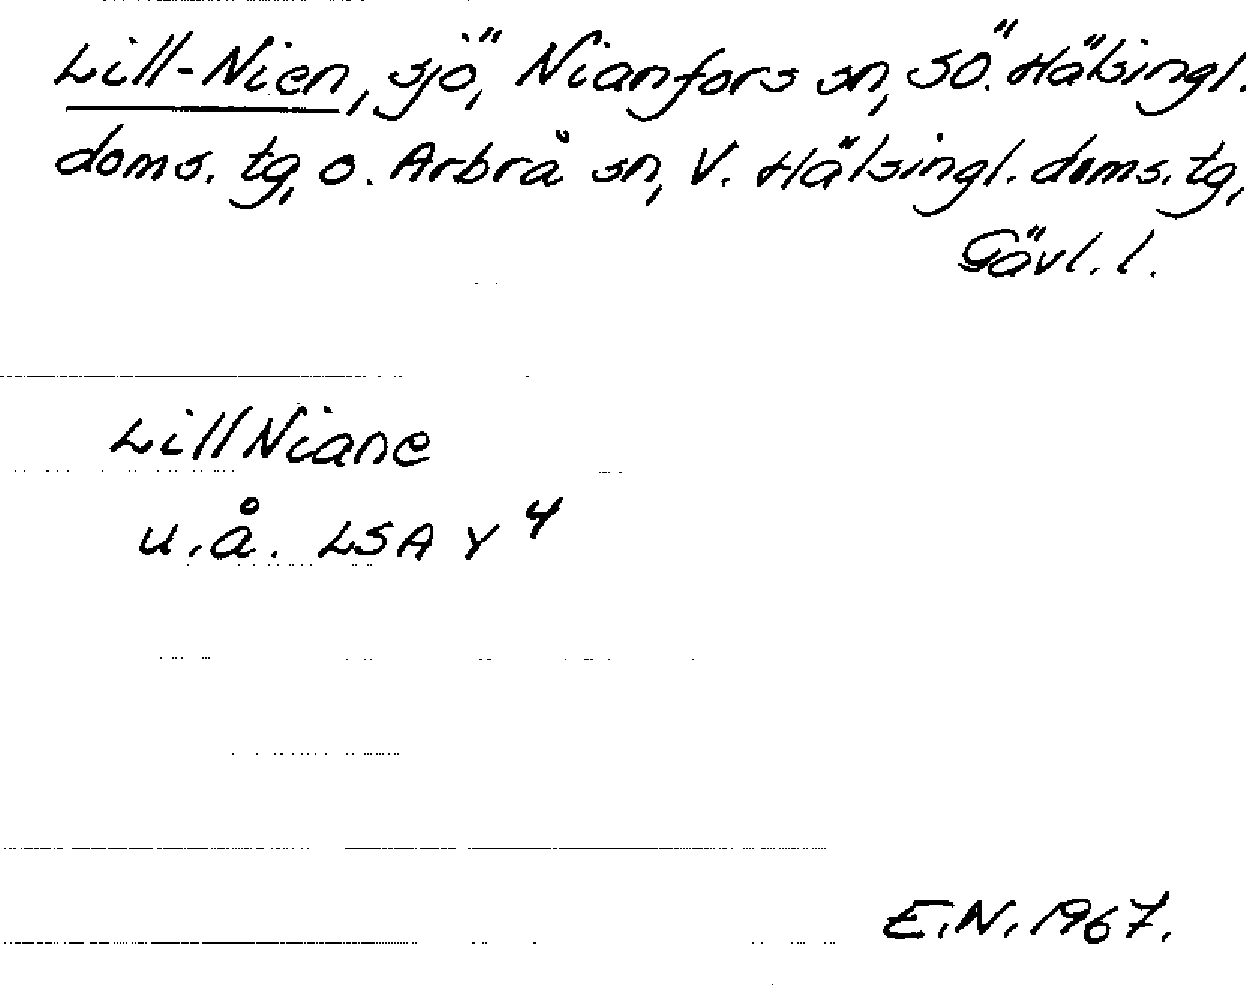 Lill-Nien, sjö, Nianfors sn, SÖ. Hälsingl.
doms. tg, o. Arbrå sn, V. Hälsingl. doms. tg,
Gävl. l.
Lill Niane
u. å. LSA Y 4
E.N. 1967.